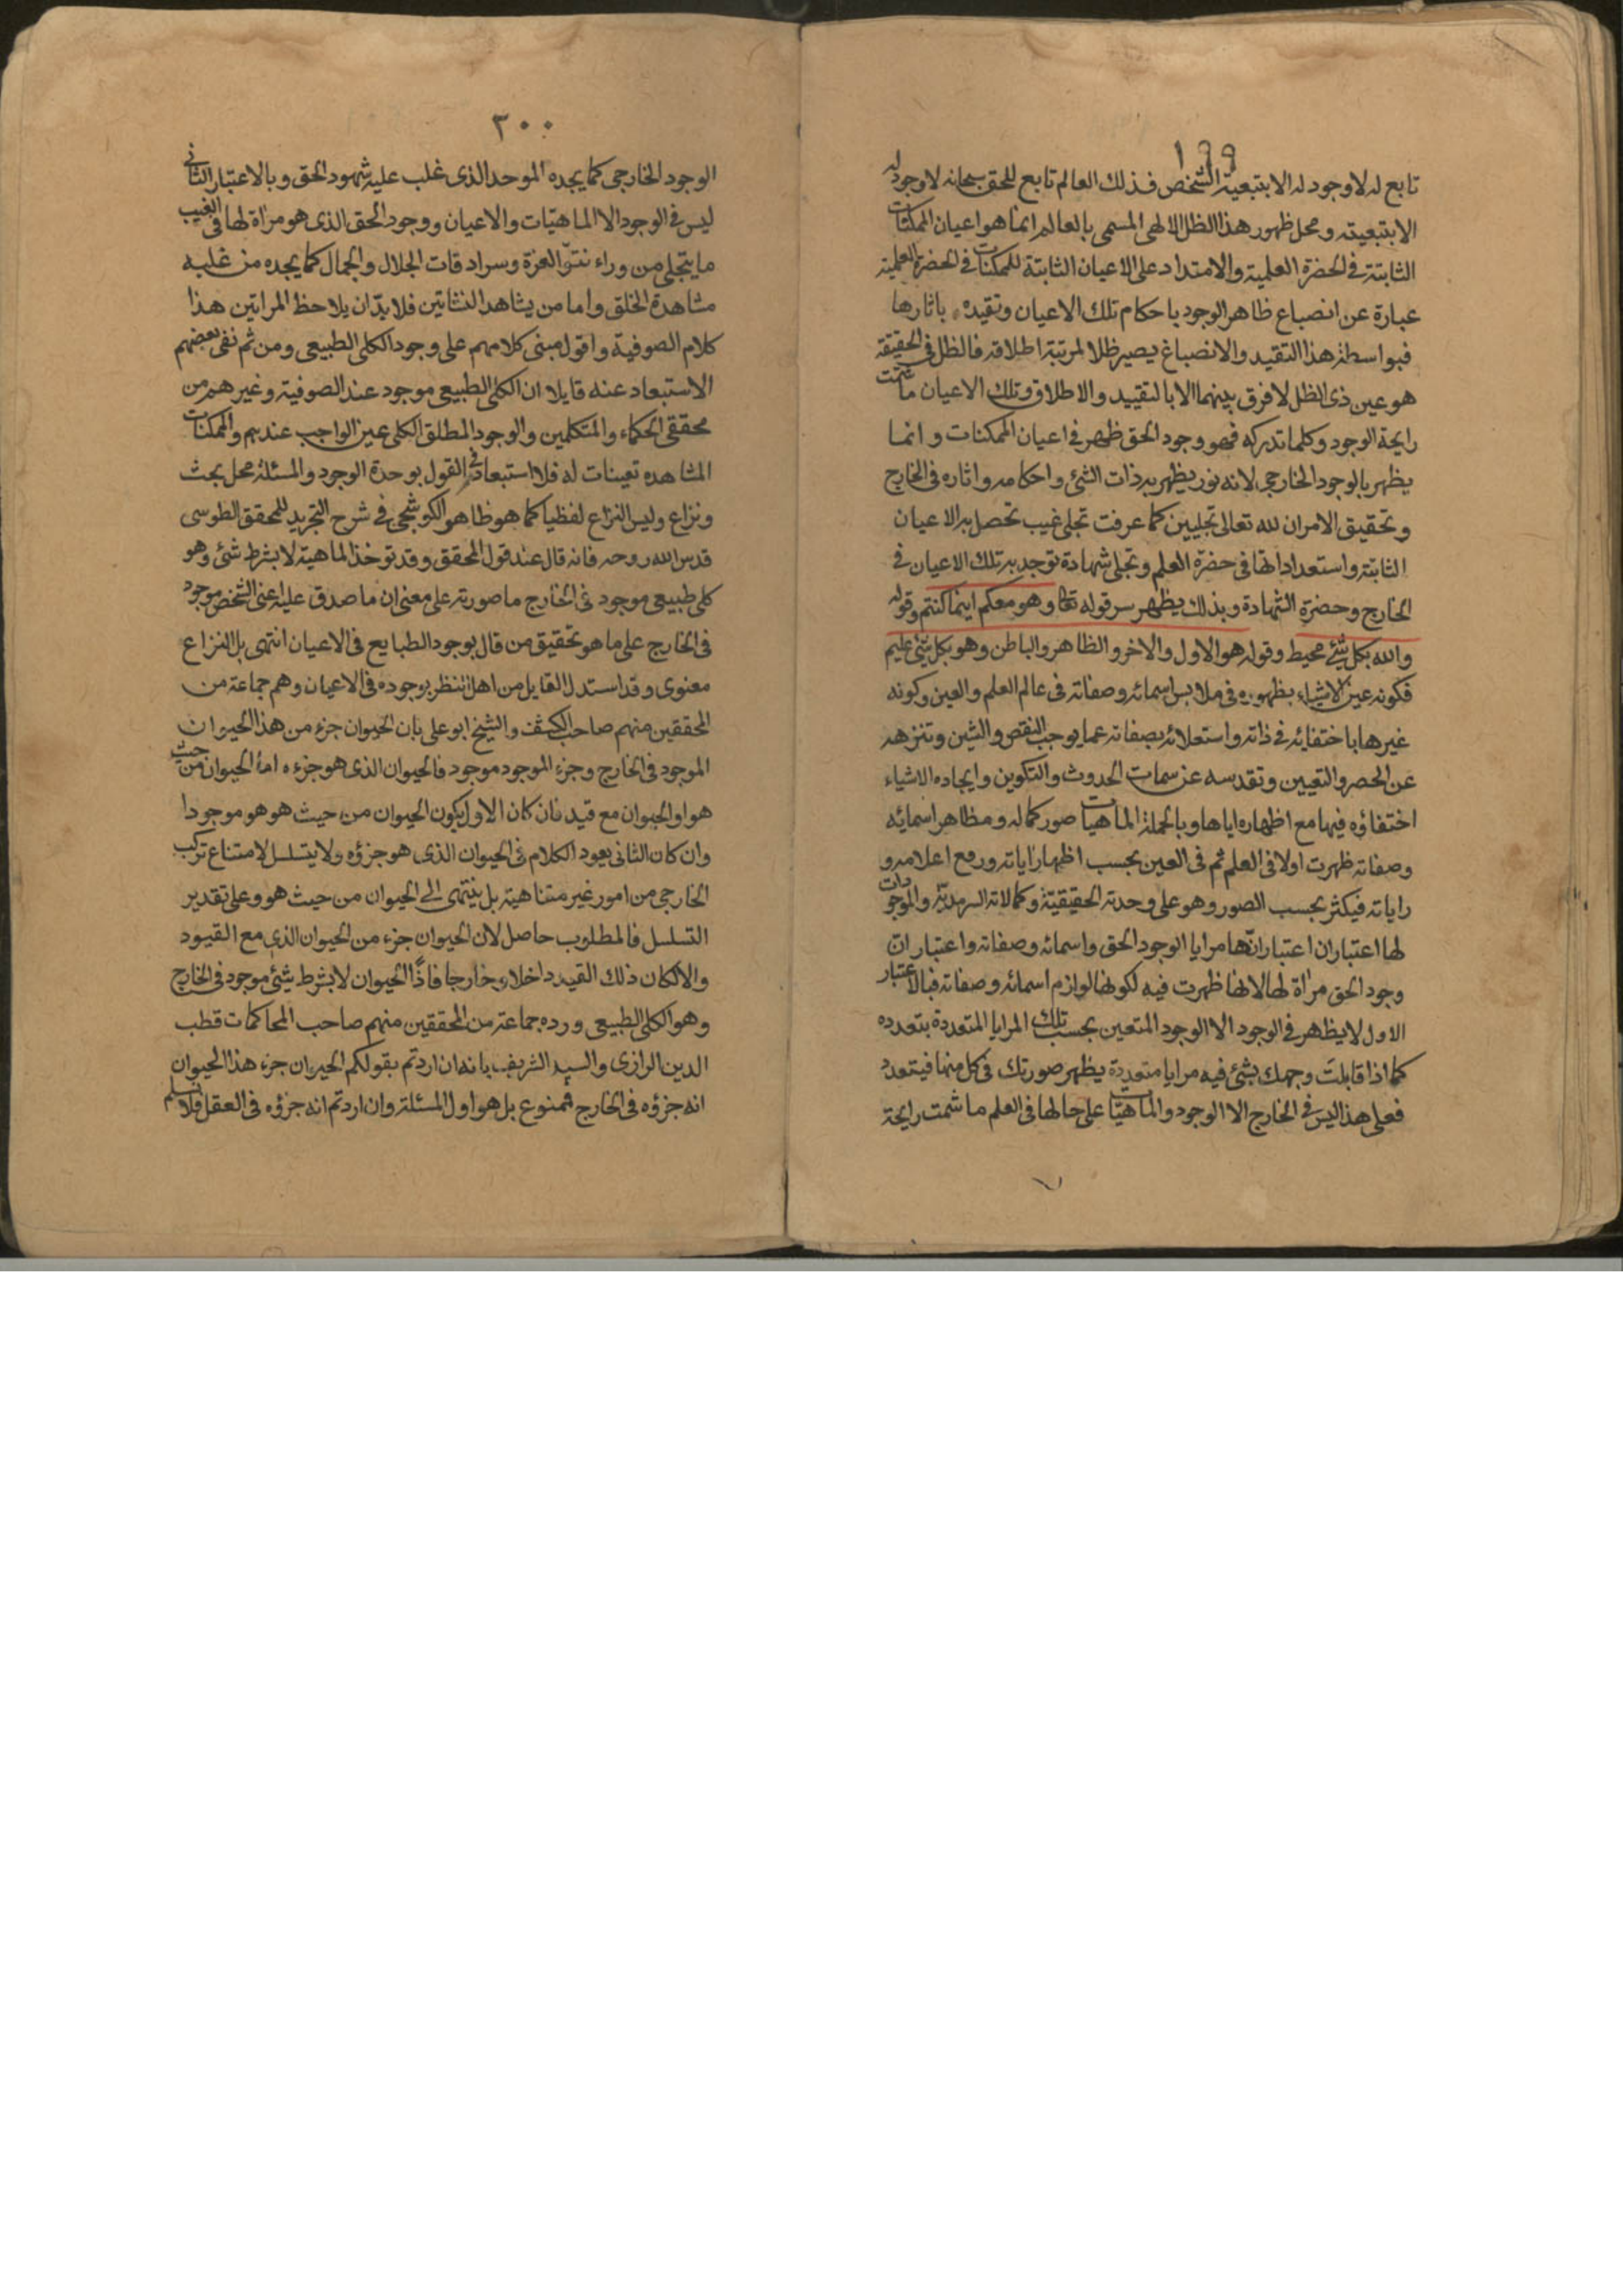 ١٩٩
تابع له لا وجود له الا بتبعية الشخص فذلك العالم تابع للحق سبحانه لا وجود له
الا بتبعيته ومحل ظهور هذا الظل الالهى المسمى بالعالم انما هو اعيان الممكنات
الثابتة فى الحضرة العلمية والامتداد على الاعيان الثابتة للممكنات فى الحضرة العلمية
عبارة عن انصباغ ظاهر الوجود باحكام تلك الاعيان وتقيده باثارها
فبواسطة هذا التقيد والانصباغ يصير ظلا لمرتبة اطلاقه فالظل فى الحقيقة
هو عين ذى الظل لا فرق بينهما الا بالتقييد والاطلاق وتلك الاعيان ما شمت
رايحة الوجود وكلما تدركه فهو وجود الحق ظهر فى اعيان الممكنات وانما
يظهر بالوجود الخارجى لانه نور يظهر به ذات الشئ واحكامه واثاره فى الخارج
وتحقيق الامر ان لله تعالى تجليين كما عرفت تجلى غيب تحصل به الاعيان
الثابتة واستعداداتها فى حضرة العلم وتجلى شهادة توجد به تلك الاعيان فى
الخارج وحضرة الشهادة وبذلك يظهر سر قوله تعا وهو معكم اينما كنتم وقوله
والله بكل شئ محيط وقوله هو الاول والاخر والظاهر والباطن وهو بكل شئ عليم
فكونه عين الاشياء بظهوره فى ملابس اسمائه وصفاته فى عالم العلم والعين وكونه
غيرها باختفائه فى ذاته واستعلائه بصفاته عما يوجب النقص والشين وتنزهه
عن الحصر والتعيين وتقدسه عن سمات الحدوث والتكوين وايجاده الاشياء
اختفاؤه فيها مع اظهاره اياها وبالجملة الماهيات صور كماله ومظاهر اسمائه
وصفاته ظهرت اولا فى العلم ثم فى العين بحسب اظهار اياته ورفع اعلامه و
راياته فيكثر بحسب الصور وهو على وحدته الحقيقية وكمالاته السرمدية والموجودات
لها اعتباران اعتبار انها مرايا الوجود الحق واسمائه وصفاته واعتبار ان
وجود الحق مرأة لها لانها ظهرت فيه لكونها لوازم اسمائه وصفاته فبالاعتبار
الاول لا يظهر فى الوجود الا الوجود المتعين بحسب تلك المرايا المتعددة بتعدده
كما اذا قابلت وجهك بشئ فيه مرايا متعددة يظهر صورتك فى كل منها فيتعدد
فعلى هذا ليس فى الخارج الا الوجود والماهيات على حالها فى العلم ما شمت رايحة
٣٠٠
الوجود الخارجى كما يجده الموحد الذى غلب عليه شهود الحق وبالاعتبار الثانى
ليس فى الوجود الا الماهيات والاعيان ووجود الحق الذى هو مرأة لها فى الغيب
ما يتجلى من وراء تتق العزة وسرادقات الجلال والجمال كما يجده من غلبه
مشاهدة الخلق واما من يشاهد النشاتين فلا بد ان يلاحظ المراتين هذا
كلام الصوفية واقول مبنى كلامهم على وجود الكلى الطبيعى ومن ثم نفى بعضهم
الاستبعاد عنه قايلا ان الكلى الطبيعى موجود عند الصوفية وغيرهم من
محققى الحكماء والمتكلمين والوجود المطلق الكلى عين الواجب عندهم والممكنات
المشاهده تعينات له فلا استبعاد فى القول بوحدة الوجود والمسئلة محل بحث
ونزاع وليس النزاع لفظيا كما هو ظاهر الكوشجى فى شرح التجريد للمحقق الطوسى
قدس الله روحه فانه قال عند قول المحقق وقد توخذ الماهية لا بشرط شئ وهو
كلى طبيعى موجود فى الخارج ما صورته على معنى ان ما صدق عليه اعنى الشخص موجود
فى الخارج على ما هو تحقيق من قال بوجود الطبايع فى الاعيان انتهى بل النزاع
معنوى وقد استدل القايل من اهل النظر بوجوده فى الاعيان وهم جماعة من
المحققين منهم صاحب الكشف والشيخ ابو على بان الحيوان جزء من هذا الحيوان
الموجود فى الخارج وجزء الموجود موجود فالحيوان الذى هو جزءه اما الحيوان من حيث
هو او الحيوان مع قيد فان كان الاول يكون الحيوان من حيث هو هو موجودا
وان كان الثانى يعود الكلام فى الحيوان الذى هو جزؤه ولا يتسلسل لامتناع تركب
الخارجى من امور غير متناهية بل ينتهى الى الحيوان من حيث هو وعلى تقدير
التسلسل فالمطلوب حاصل لان الحيوان جزء من الحيوان الذى مع القيود
والا لكان ذلك القيد داخلا خارجا فاذًا الحيوان لا بشرط شئ موجود فى الخارج
وهو الكلى الطبيعى ورده جماعة من المحققين منهم صاحب المحاكمات قطب
الدين الرازى والسيد الشريف بانه ان اردتم بقولكم الحيوان جزء هذا الحيوان
انه جزؤه فى الخارج فممنوع بل هو اول المسئلة وان اردتم انه جزؤه فى العقل فلا نسلم